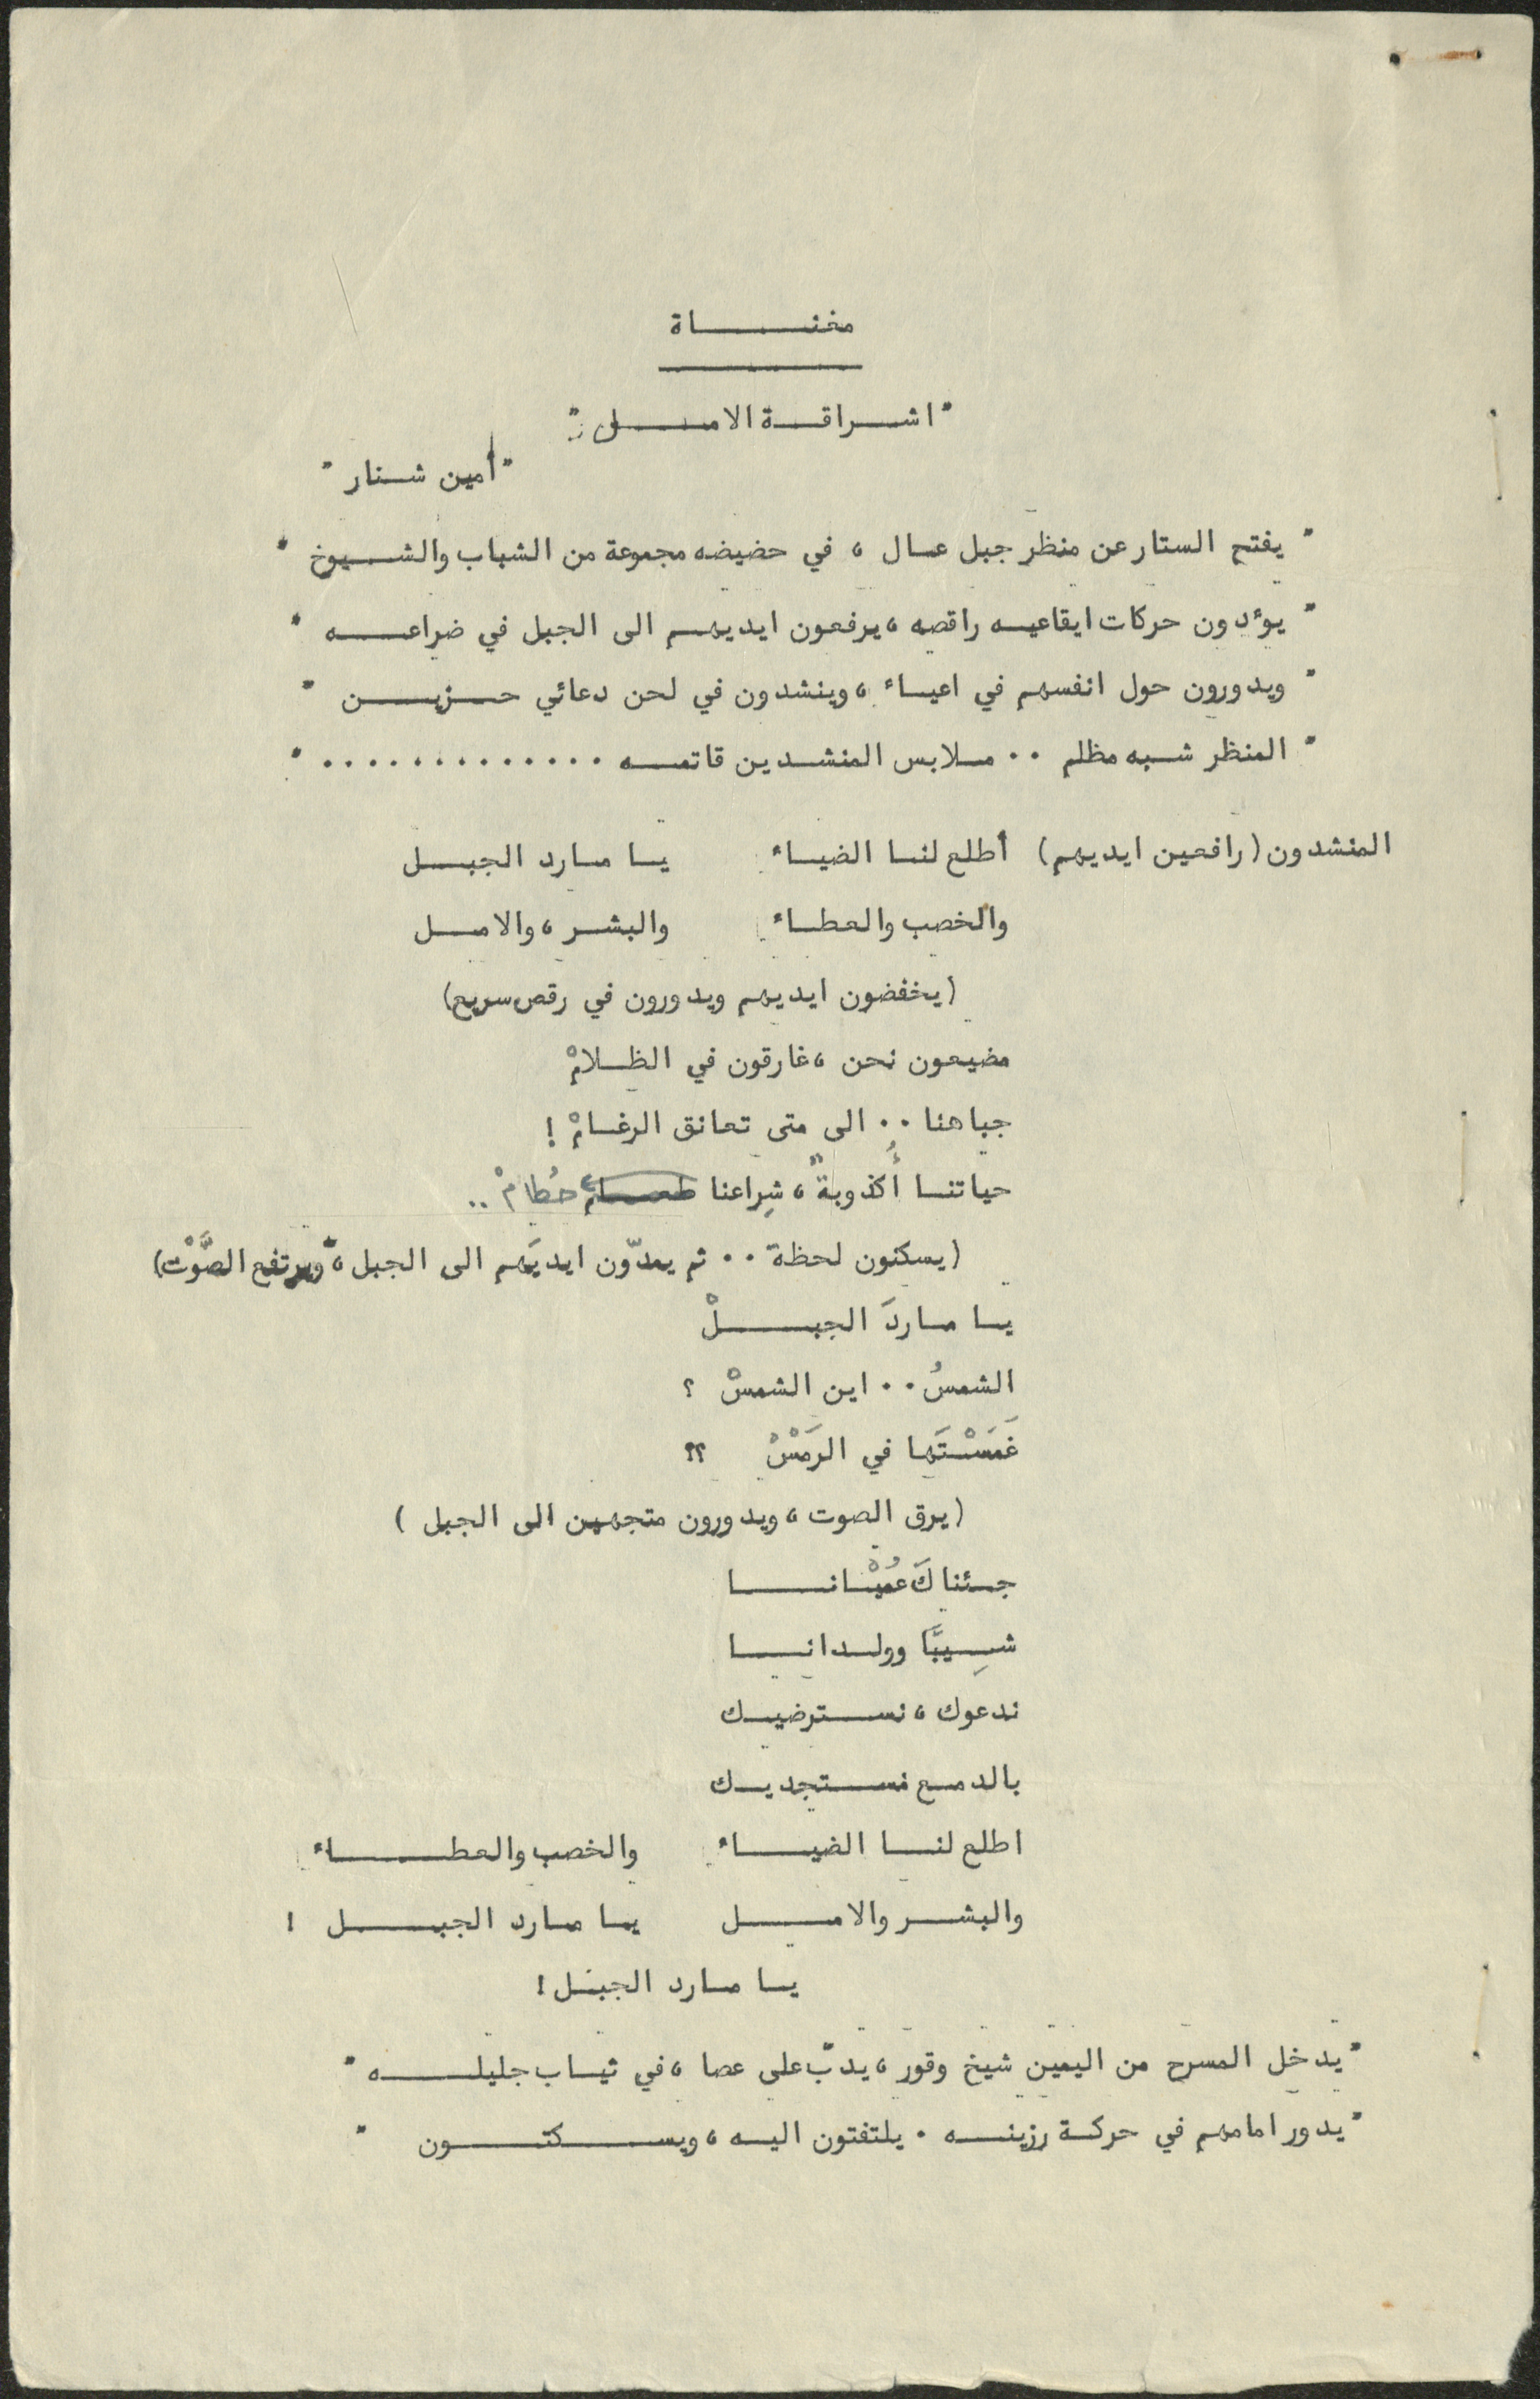 مغناة
"اشراقة الامل"
"أمين شنار"
" يفتح الستار عن منظر جبل عال ، في حضيضه مجموعة من الشباب والشيوخ "
" يؤدون حركات ايقاعيه راقصه ، يرفعون ايديهم الى الجبل في ضراعه "
" ويدورون حول انفسهم في اعياء ، وينشدون في لحن دعائي حزين "
" المنظر شبه مظلم .. ملابس المنشدين قاتمه ............. "
المنشدون (رافعين ايديهم) أطلع لنا الضياء يا مارد الجبل
والخصب والعطاء والبشر ، والامل
(يخفضون ايديهم ويدورون في رقص سريع)
مضيعون نحن ، غارقون في الظلامْ
جباهنا .. الى متى تعانق الرغامْ !
حياتنا أُكذوبةٌ ، شِراعنا حُطامْ ..
(يسكنون لحظة .. ثم يمدّون ايديَهم الى الجبل ، ويرتفع الصَّوْت)
يا ماردَ الجبلْ
الشمسُ .. اين الشمسْ ؟
غَمَسْتَها في الرَمْسْ ؟؟
(يرق الصوت ، ويدورون متجهين الى الجبل )
جئناكَ عُميْانا
شِيبًا وولدانا
ندعوك ، نسترضيك
بالدمع نستجديك
اطلع لنا الضياء والخصب والعطاء
والبشر والامل يا مارد الجبل !
يا مارد الجبل !
" يدخل المسرح من اليمين شيخ وقور ، يدبّ على عصا ، في ثياب جليله "
" يدور امامهم في حركة رزينه . يلتفتون اليه ، ويسكتون "